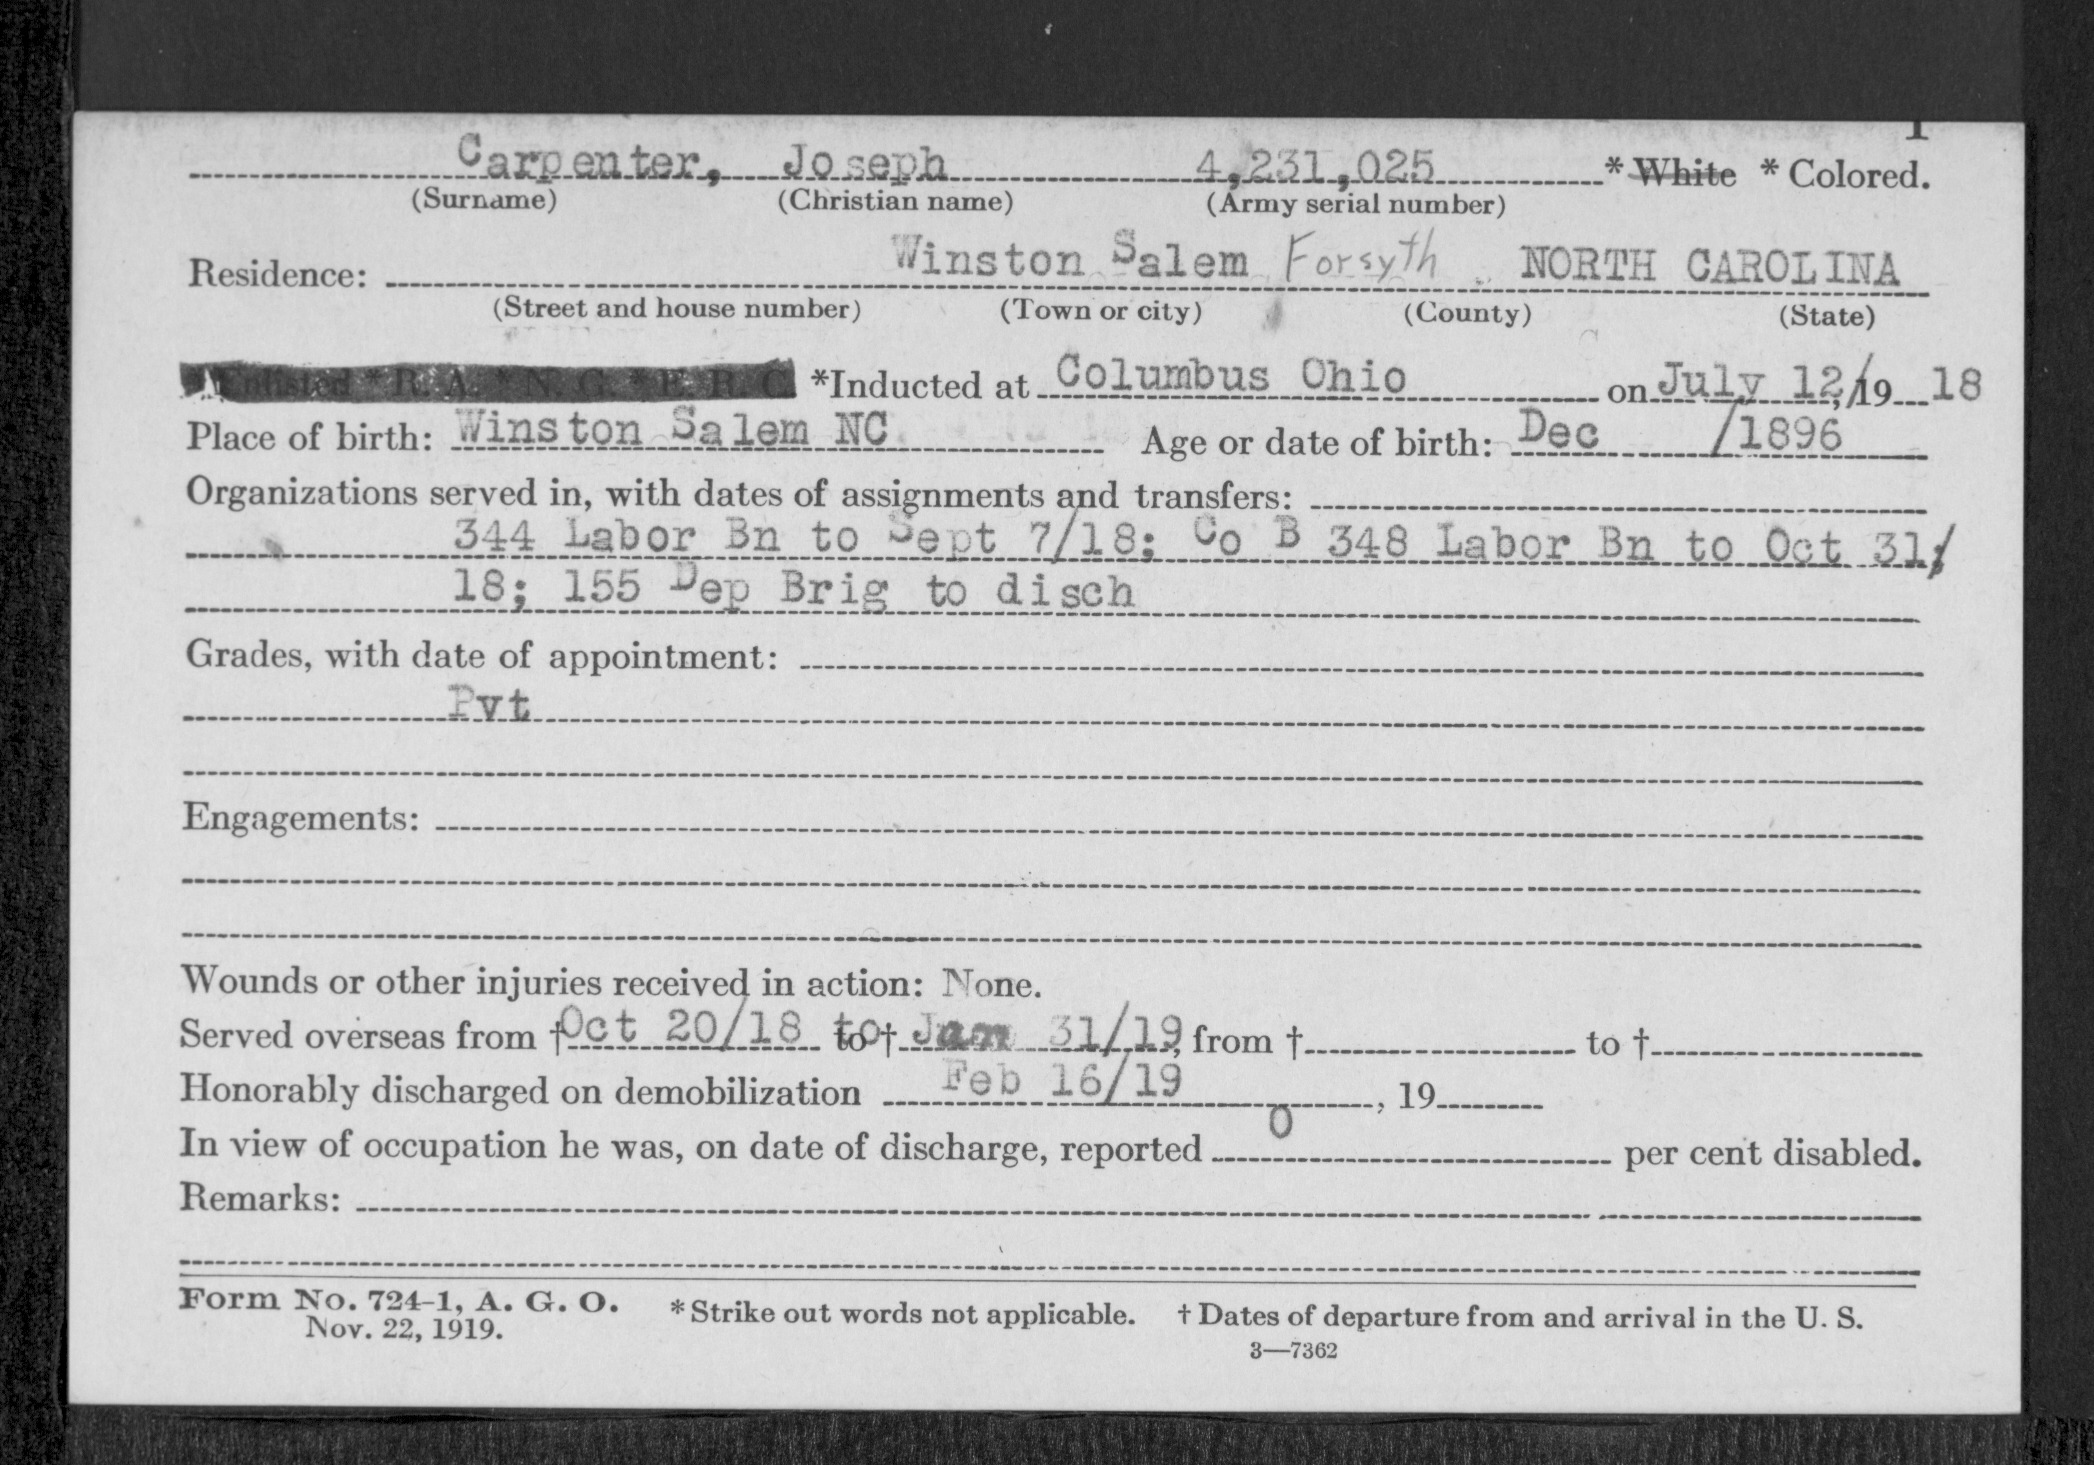 1
Carpenter, Joseph 4,231,025 * White * Colored.
(Surname) (Christian name) (Army serial number)
Residence: Winston Salem Forsyth NORTH CAROLINA
(Street and house number) (Town or city) (County) (State)
Enlisted * R. A. * N. G. * E. R. C. *Inducted at Columbus Ohio on July 12,/19 18
Place of birth: Winston Salem NC Age or date of birth: Dec /1896
Organizations served in, with dates of assignments and transfers:
344 Labor Bn to Sept 7/18; Co B 348 Labor Bn to Oct 31/
18; 155 Dep Brig to disch
Grades, with date of appointment:
Pvt
Engagements:
Wounds or other injuries received in action: None.
Served overseas from † Oct 20/18 to † Jan 31/19, from † to †
Honorably discharged on demobilization Feb 16/19, 19
In view of occupation he was, on date of discharge, reported 0 per cent disabled.
Remarks:
Form No. 724-1, A. G. O. * Strike out words not applicable. † Dates of departure from and arrival in the U. S.
Nov. 22, 1919.
3—7362